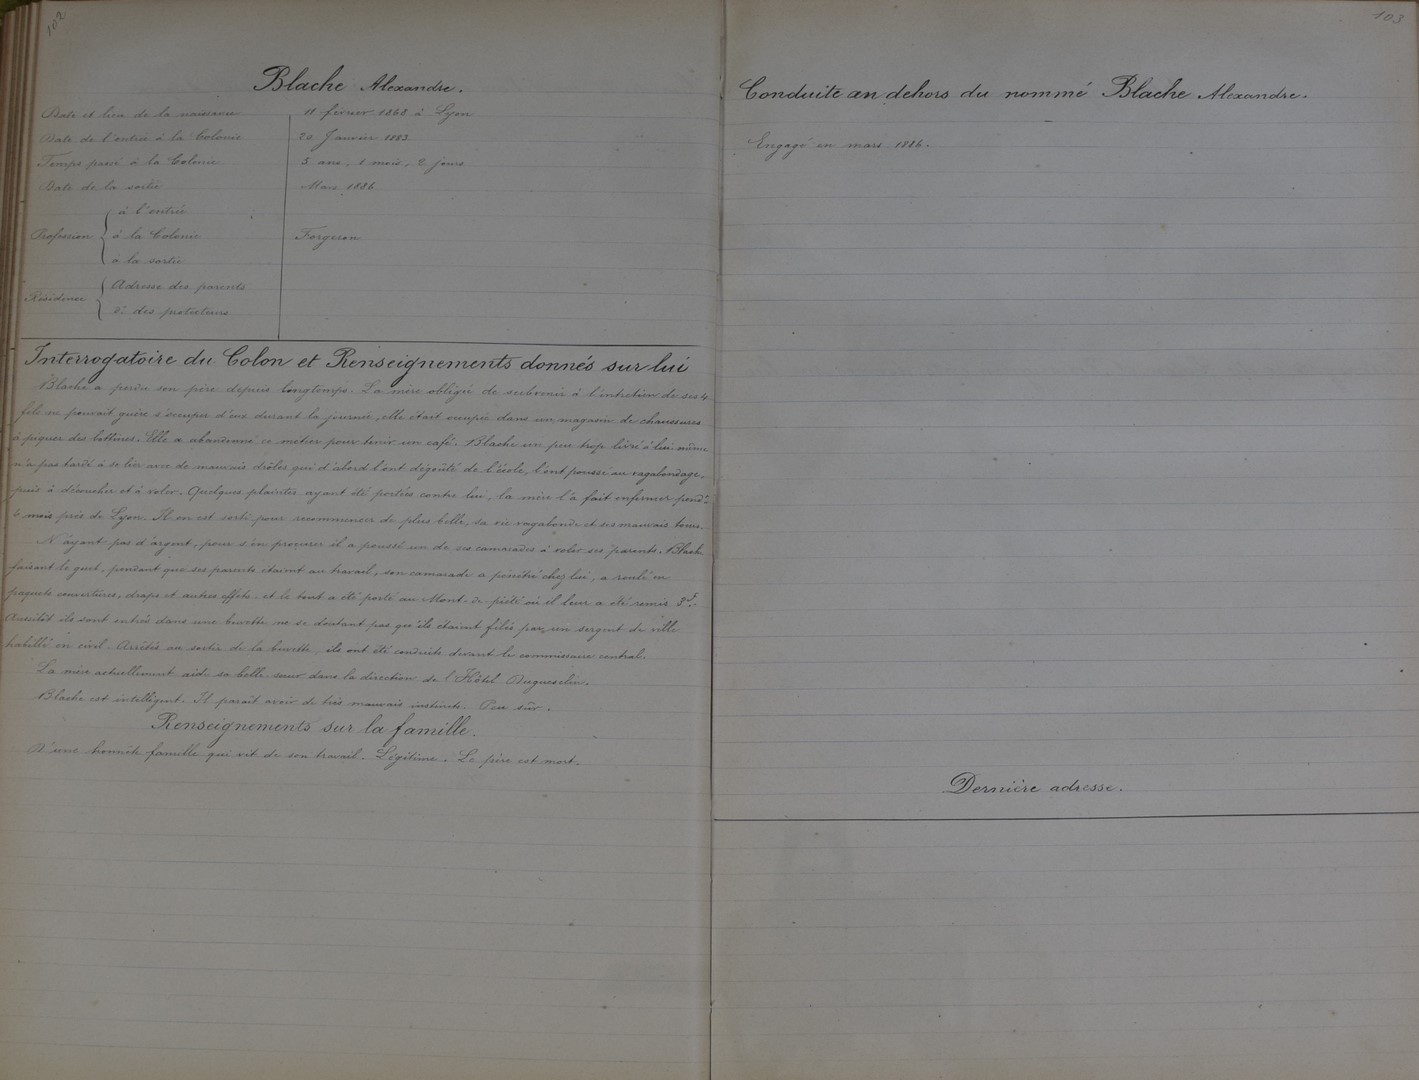 102
Blache Alexandre.
Date et lieu de la naissance 11 février 1868 à Lyon
Date de l'entrée à la Colonie 20 Janvier 1883
Temps passé à la Colonie 3 ans, 1 mois, 2 jours
Date de la sortie Mars 1886
Profession { à l'entrée
à la Colonie Forgeron
à la sortie
Résidence { Adresse des parents
d° des protecteurs
Interrogatoire du Colon et Renseignements donnés sur lui
Blache a perdu son père depuis longtemps. La mère obligée de subvenir à l'entretien de ses 4
fils ne pouvait guère s'occuper d'eux durant la journée, elle était occupée dans un magasin de chaussures
à piquer des bottines. Elle a abandonné ce métier pour tenir un café. Blache un peu trop livré à lui-même
n'a pas tardé à se lier avec de mauvais drôles qui d'abord l'ont dégoûté de l'école, l'ont poussé au vagabondage,
puis à découcher et à voler. Quelques plaintes ayant été portées contre lui, la mère l'a fait enfermer pendt
6 mois près de Lyon. Il en est sorti pour recommencer de plus belle, sa vie vagabonde et ses mauvais tours.
N'ayant pas d'argent, pour s'en procurer il a poussé un de ses camarades à voler ses parents. Blache
faisant le guet, pendant que ses parents étaient au travail, son camarade a pénétré chez lui, a roulé en
paquets couvertures, draps et autres effets. et le tout a été porté au Mont-de-piété où il leur a été remis 3f.
Aussitôt ils sont entrés dans une buvette ne se doutant pas qu'ils étaient filés par un sergent de ville
habillé en civil. Arrêtés au sortir de la buvette, ils ont été conduits devant le commissaire central.
La mère actuellement aide sa belle sœur dans la direction de l'Hôtel Duguesclin.
Blache est intelligent. Il paraît avoir de très mauvais instincts. Peu sûr.
Renseignements sur la famille.
D'une honnête famille qui vit de son travail. Légitime. Le père est mort.
103
Conduite au dehors du nommé Blache Alexandre.
Engagé en mars 1886.
Dernière adresse.